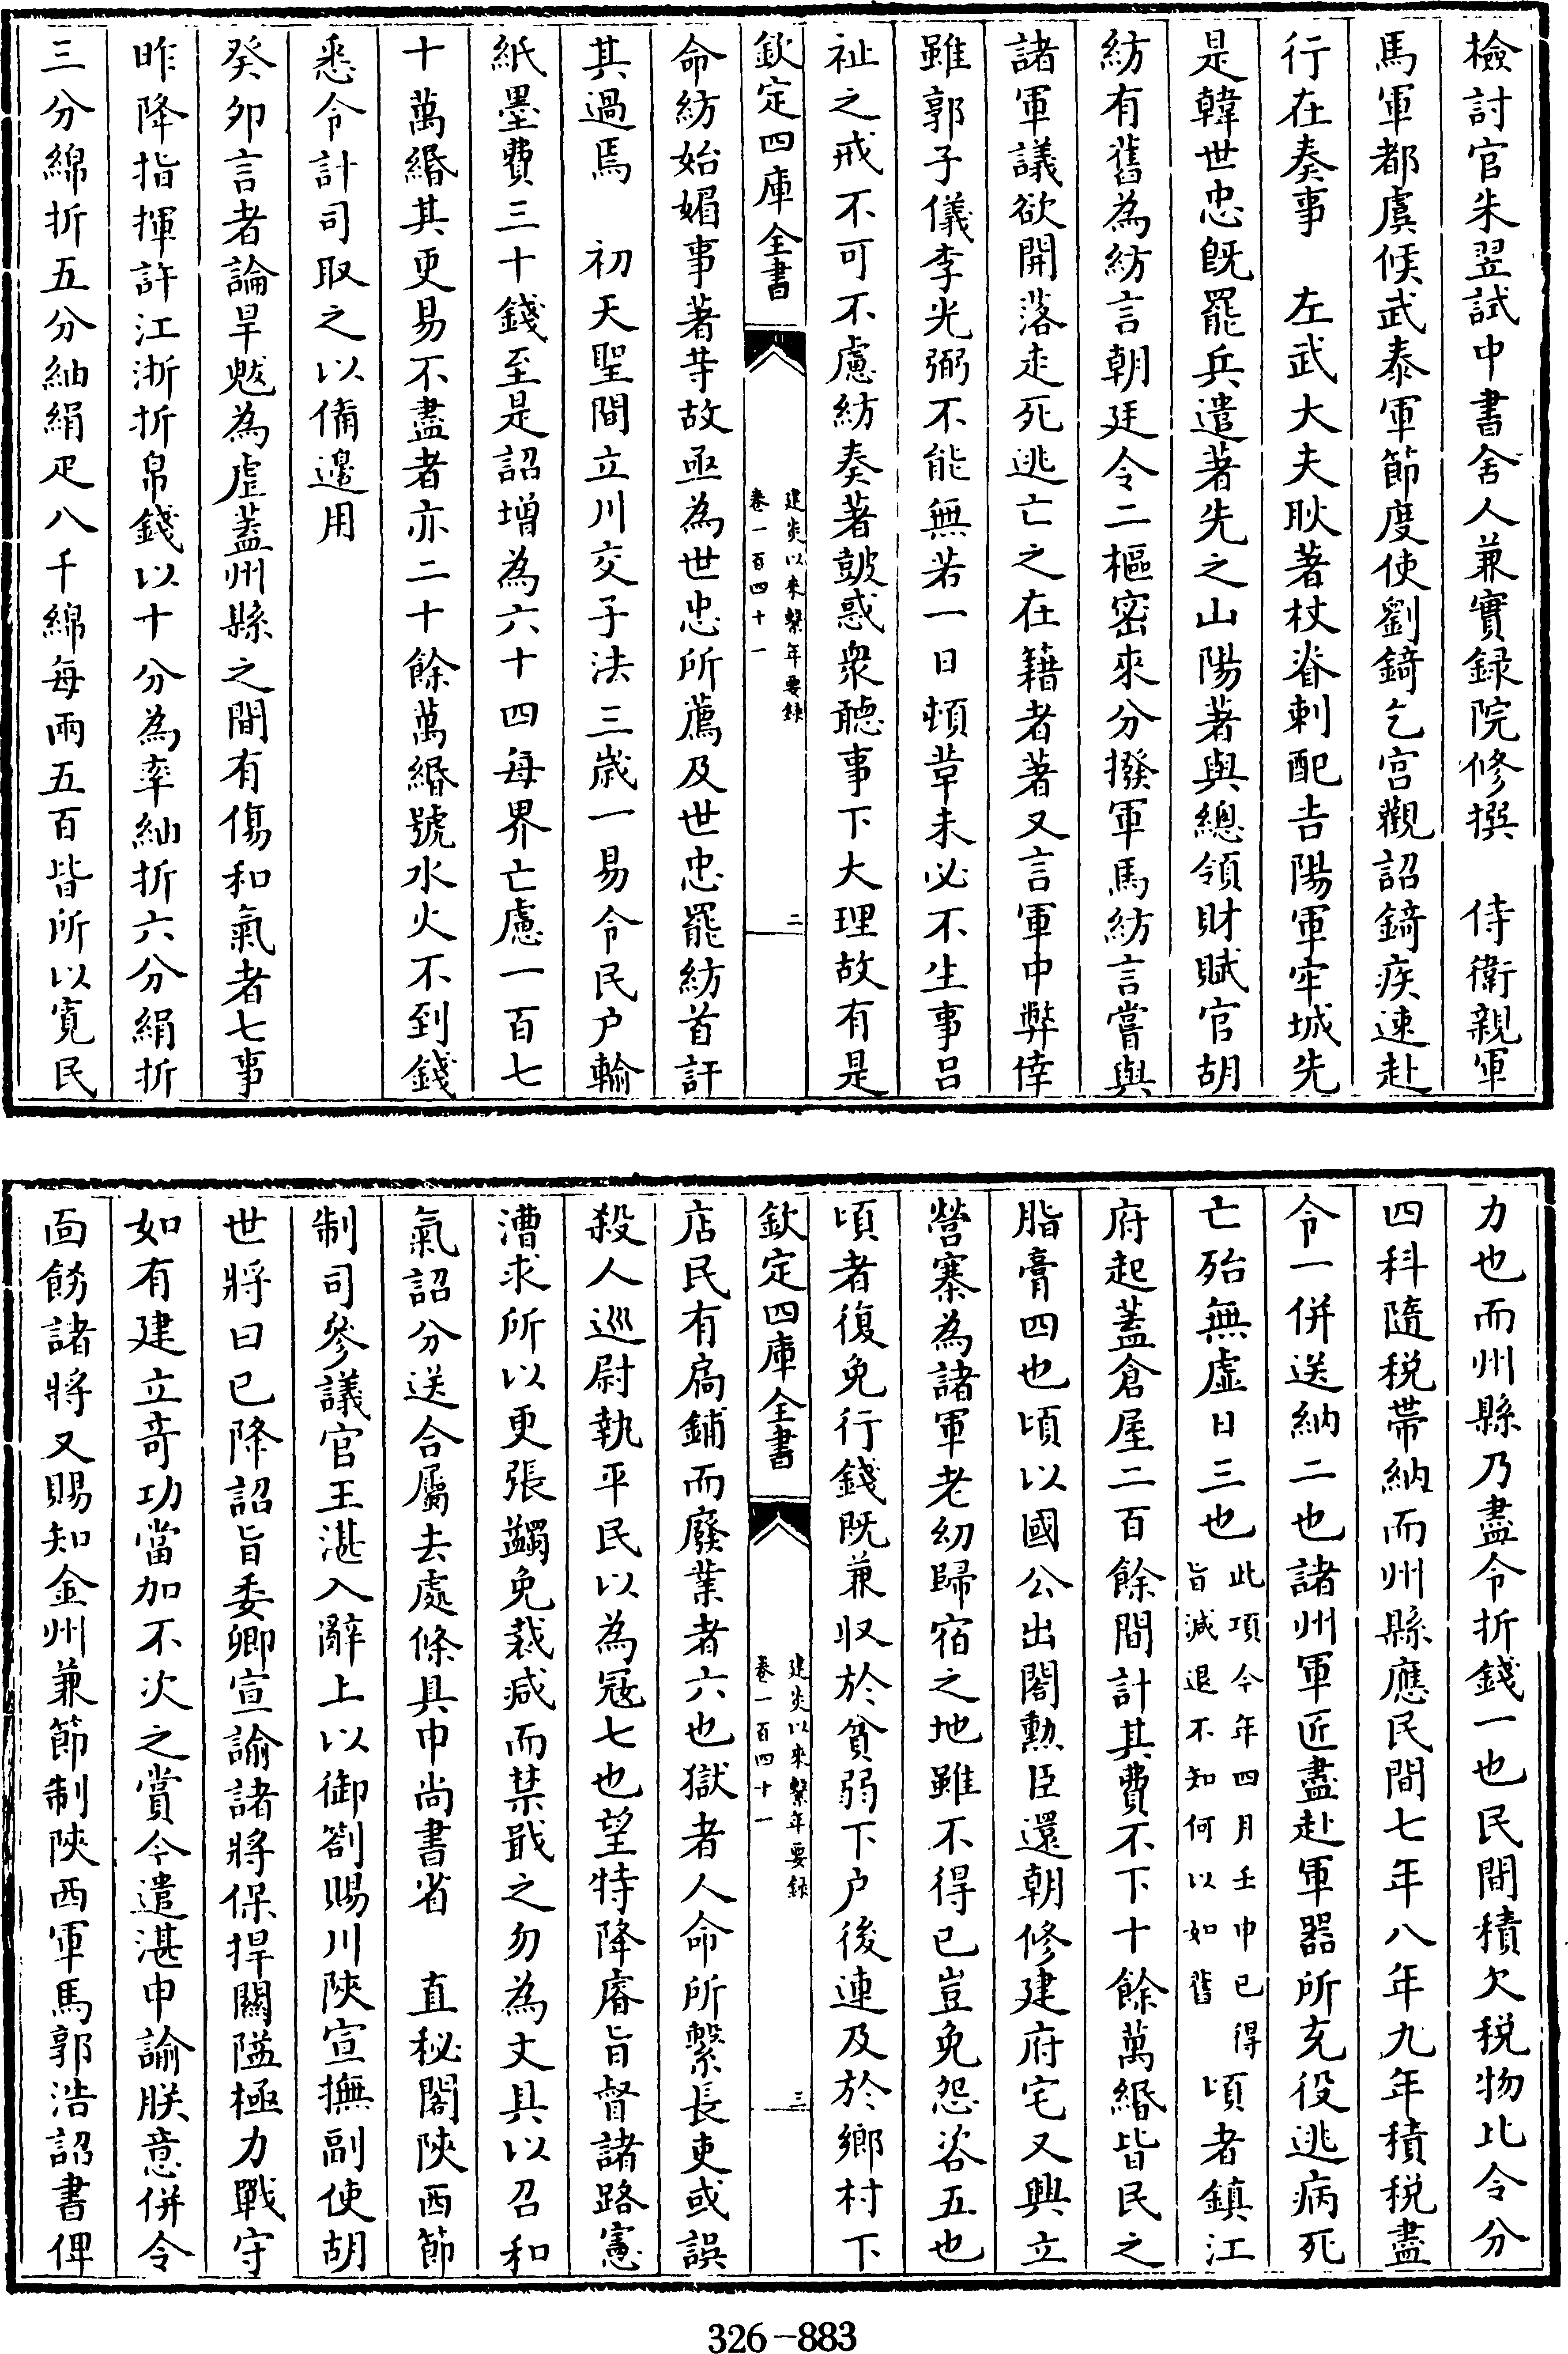 檢討官朱翌試中書舍人兼實録院修撰　侍衛親軍
馬軍都虞候武泰軍節度使劉錡乞宫觀詔錡疾速赴
行在奏事　左武大夫耿著杖脊刺配吉陽軍牢城先
是韓世忠既罷兵遣著先之山陽著與總領財賦官胡
紡有舊為紡言朝廷令二樞密來分撥軍馬紡言嘗與
諸軍議欲開落走死逃亡之在籍者著又言軍中弊倖
雖郭子儀李光弼不能無若一日頓革未必不生事吕
祉之戒不可不慮紡奏著鼓惑衆聽事下大理故有是
欽定四庫全書
建炎以來繫年要録
卷一百四十一
二
命紡始媚事著等故亟為世忠所薦及世忠罷紡首訐
其過焉　初天聖間立川交子法三歲一易令民户輸
紙墨費三十錢至是詔增為六十四每界亡慮一百七
十萬緡其更易不盡者亦二十餘萬緡號水火不到錢
悉令計司取之以備邊用
癸卯言者論旱魃為虐蓋州縣之間有傷和氣者七事
昨降指揮許江浙折帛錢以十分為率紬折六分絹折
三分綿折五分紬絹疋八千綿每兩五百皆所以寛民
力也而州縣乃盡令折錢一也民間積欠税物比令分
四科隨税帶納而州縣應民間七年八年九年積税盡
令一併送納二也諸州軍匠盡赴軍器所充役逃病死
亡殆無虚日三也
此項今年四月壬申已得
旨減退不知何以如舊
頃者鎮江
府起蓋倉屋二百餘間計其費不下十餘萬緡皆民之
脂膏四也頃以國公出閤勲臣還朝修建府宅又興立
營寨為諸軍老幼歸宿之地雖不得已豈免怨咨五也
頃者復免行錢既兼收於貧弱下户後連及於鄉村下
欽定四庫全書
建炎以來繫年要録
卷一百四十一
三
店民有扃鋪而廢業者六也獄者人命所繫長吏或誤
殺人巡尉執平民以為冦七也望特降睿旨督諸路憲
漕求所以更張蠲免裁減而禁戢之勿為文具以召和
氣詔分送合屬去處條具申尚書省　直秘閣陜西節
制司參議官王湛入辭上以御劄賜川陜宣撫副使胡
世將曰已降詔旨委卿宣諭諸將保捍關隘極力戰守
如有建立竒功當加不次之賞今遣湛申諭朕意併令
面飭諸將又賜知金州兼節制陜西軍馬郭浩詔書俾
326—883